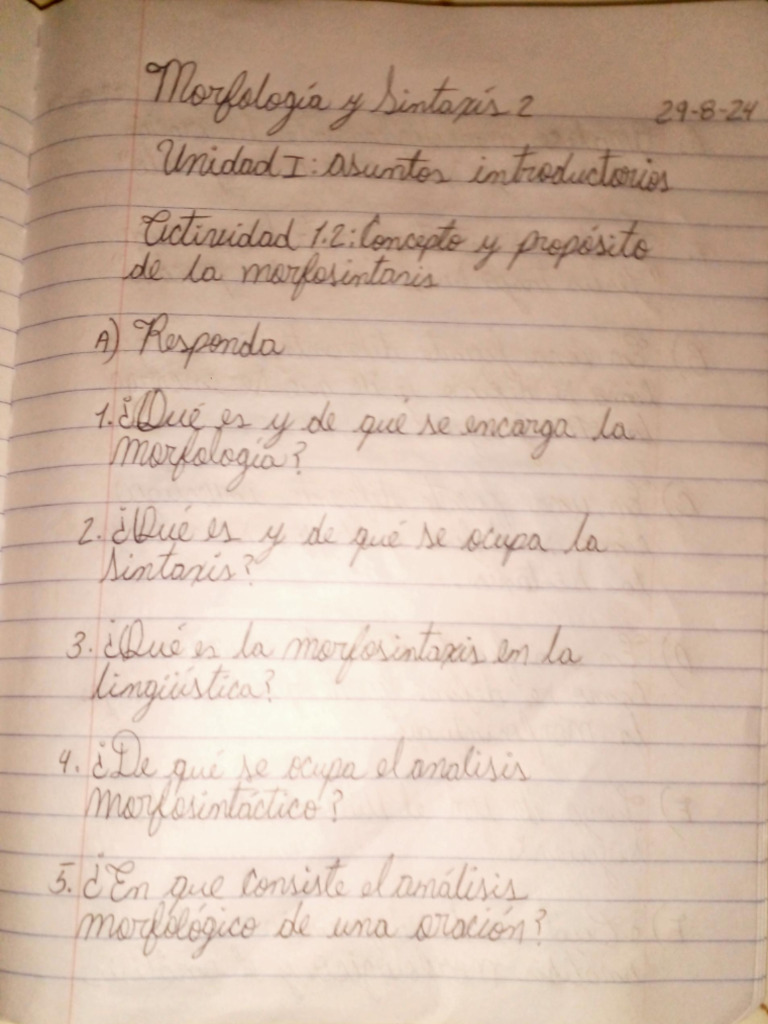 Morfología y Sintaxís 2 29-8-24
Unidad I: Asuntos introductorios
Actividad 1.2: Concepto y propósito
de la morfosintaxis
A) Responda
1. ¿Qué es y de qué se encarga la
morfología?
2. ¿Qué es y de qué se ocupa la
sintaxis?
3. ¿Qué es la morfosintaxis en la
lingüística?
4. ¿De qué se ocupa el analisis
morfosintáctico?
5. ¿En que consiste el análisis
morfológico de una oración?